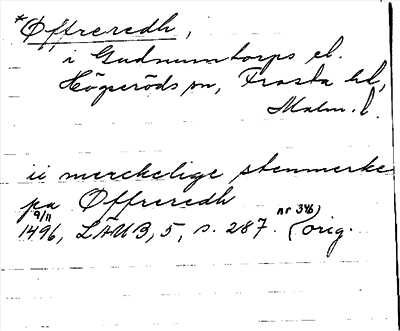 *Øffreredh,
i Gudmuntorps el.
Högseröds sn, Frosta hd,
Malm. l.
ii merckelige stenmercke
pa Øffreredh
9/11 1496, LÄUB, 5, s. 287. nr 346) (orig.